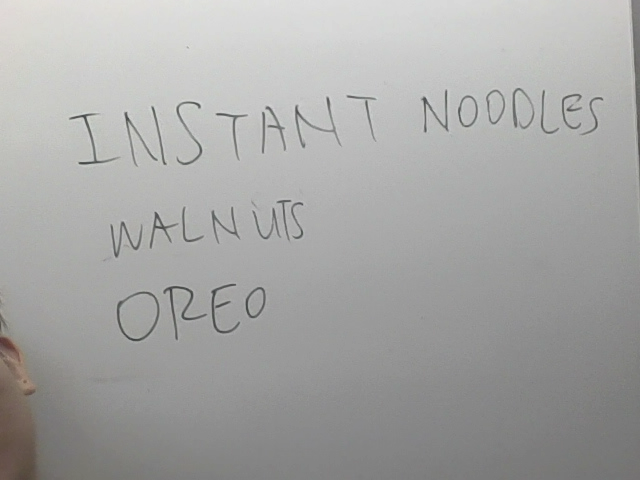 INSTANT NOODLES
WALNUTS
OREO